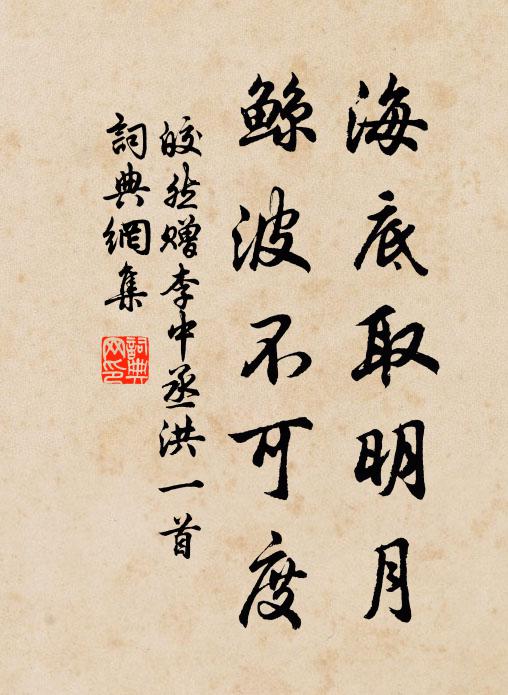 海底取明月
鲸波不可度
皎然赠李中丞洪一首
詞典網集
詞典網印